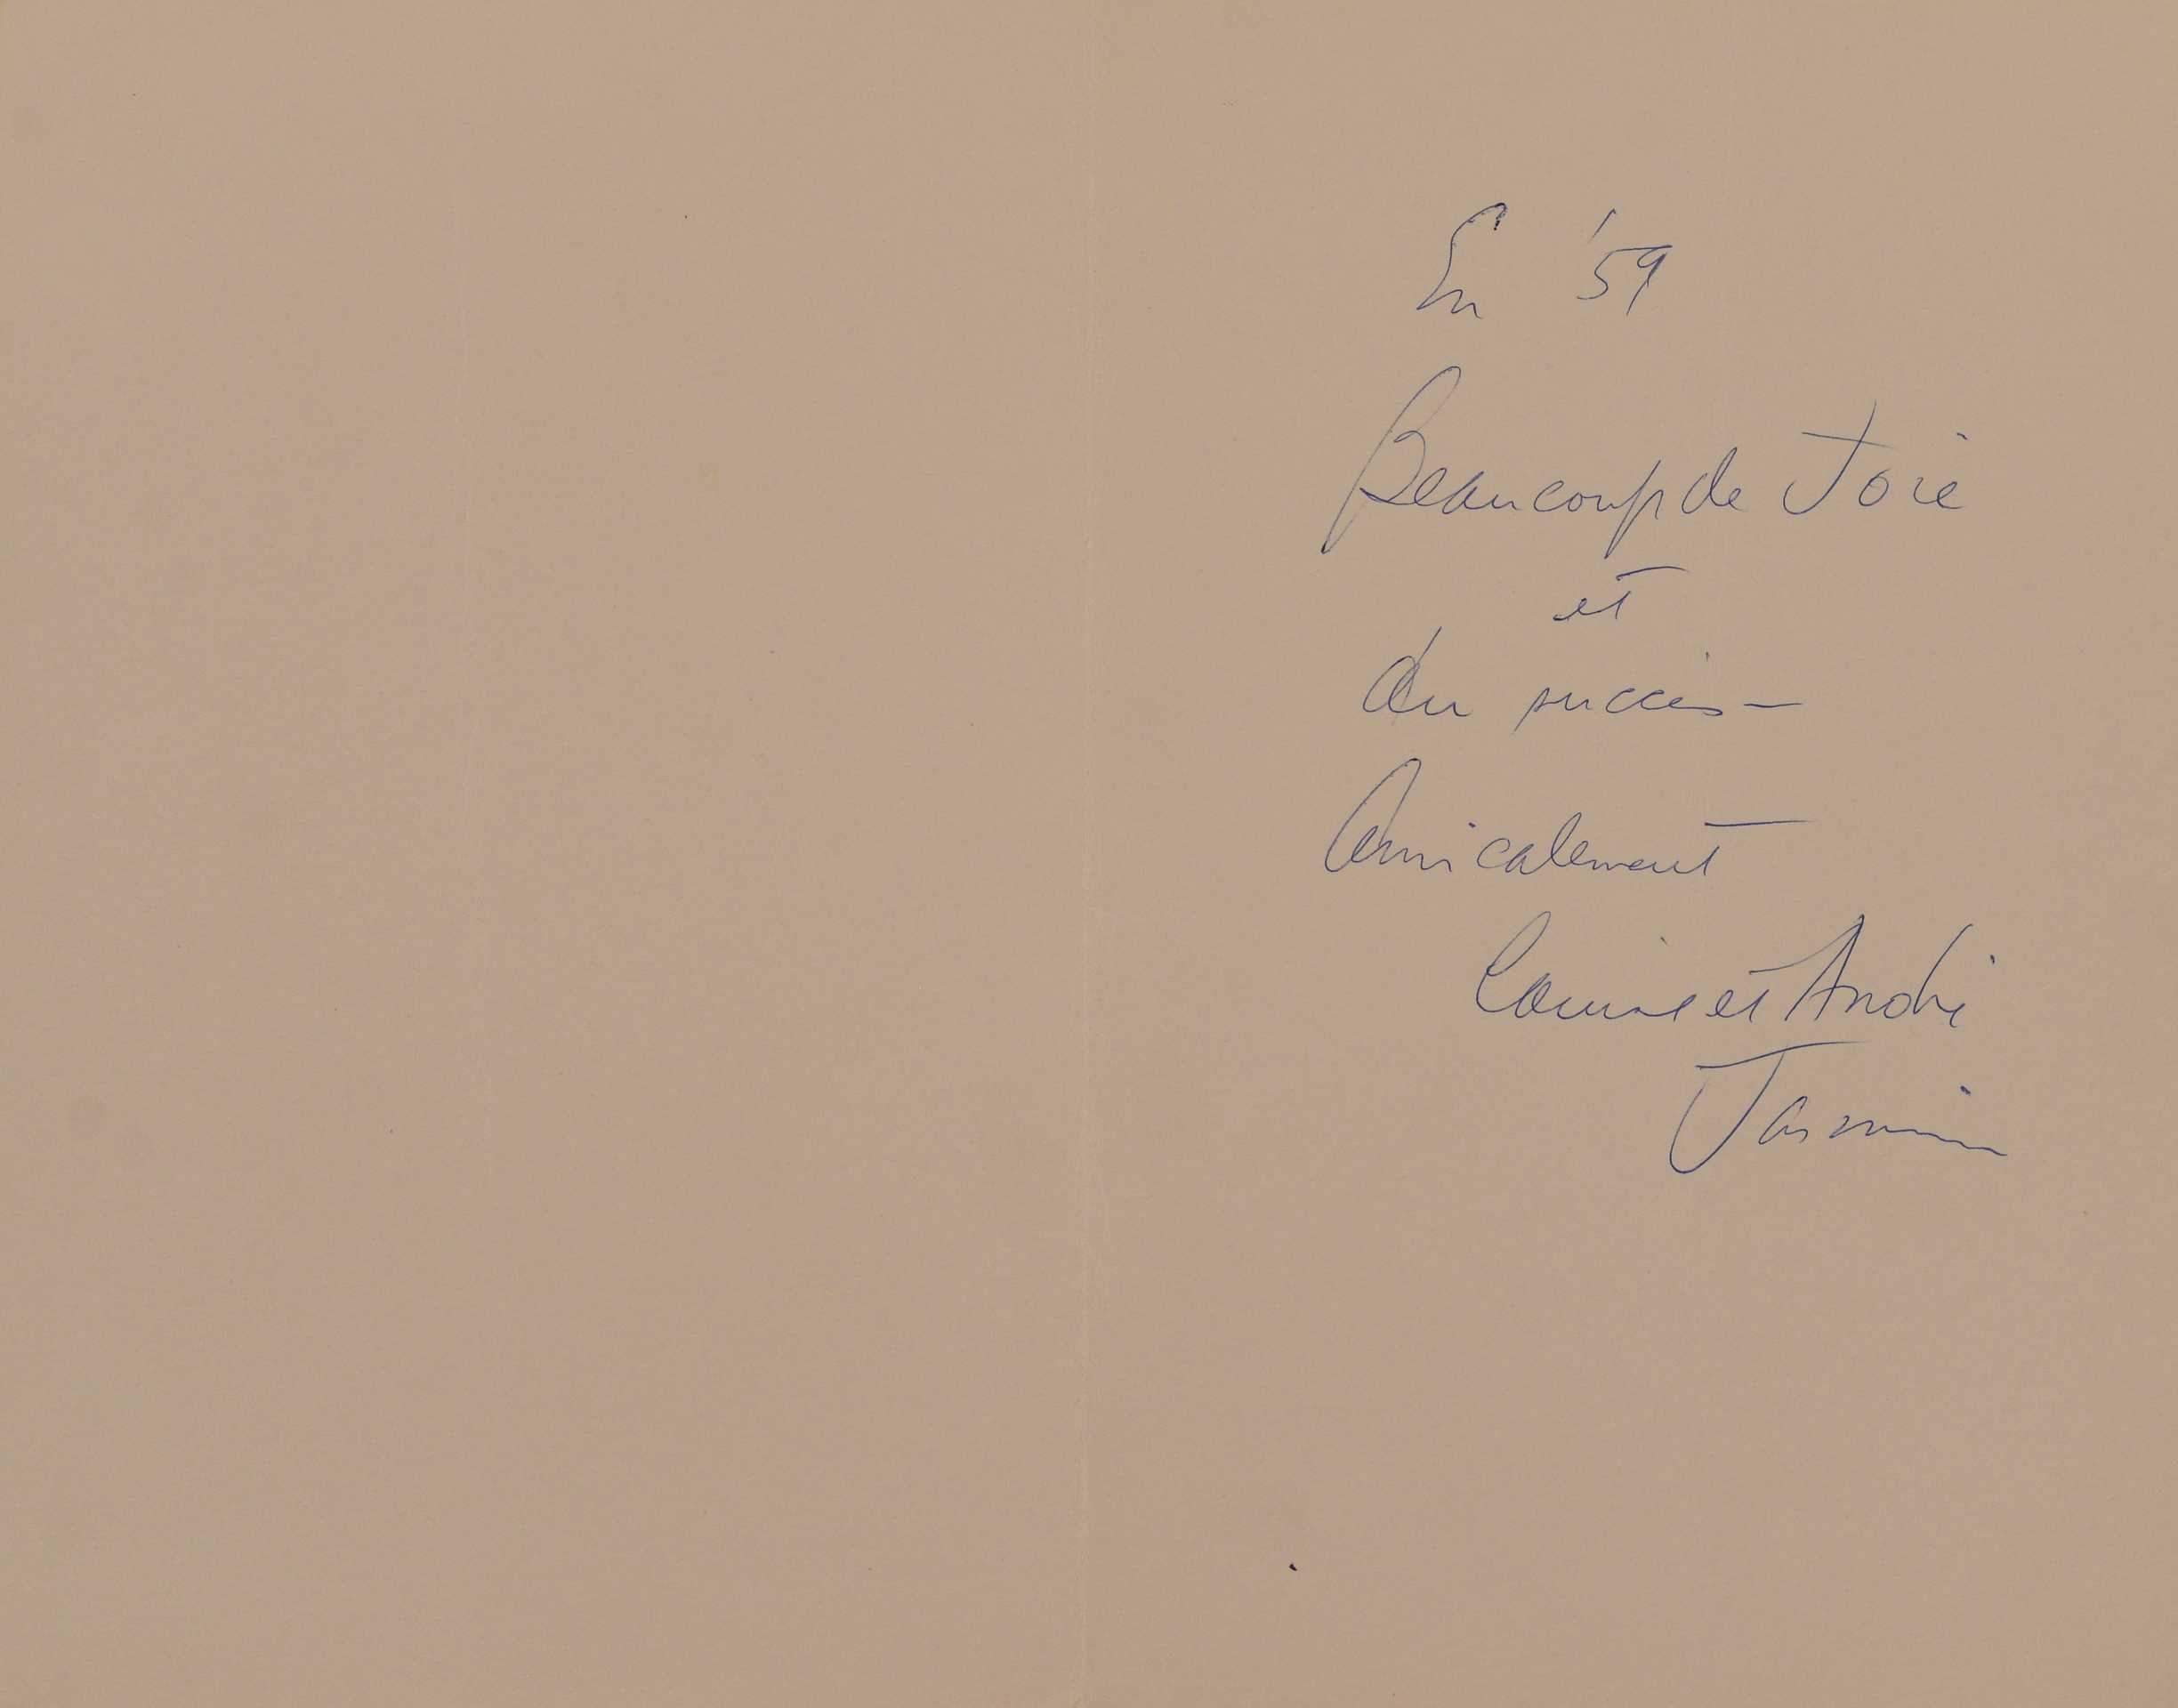 En '59
Beaucoup de Joie
et
du succès –
Amicalement
Louise et André
Jasmin